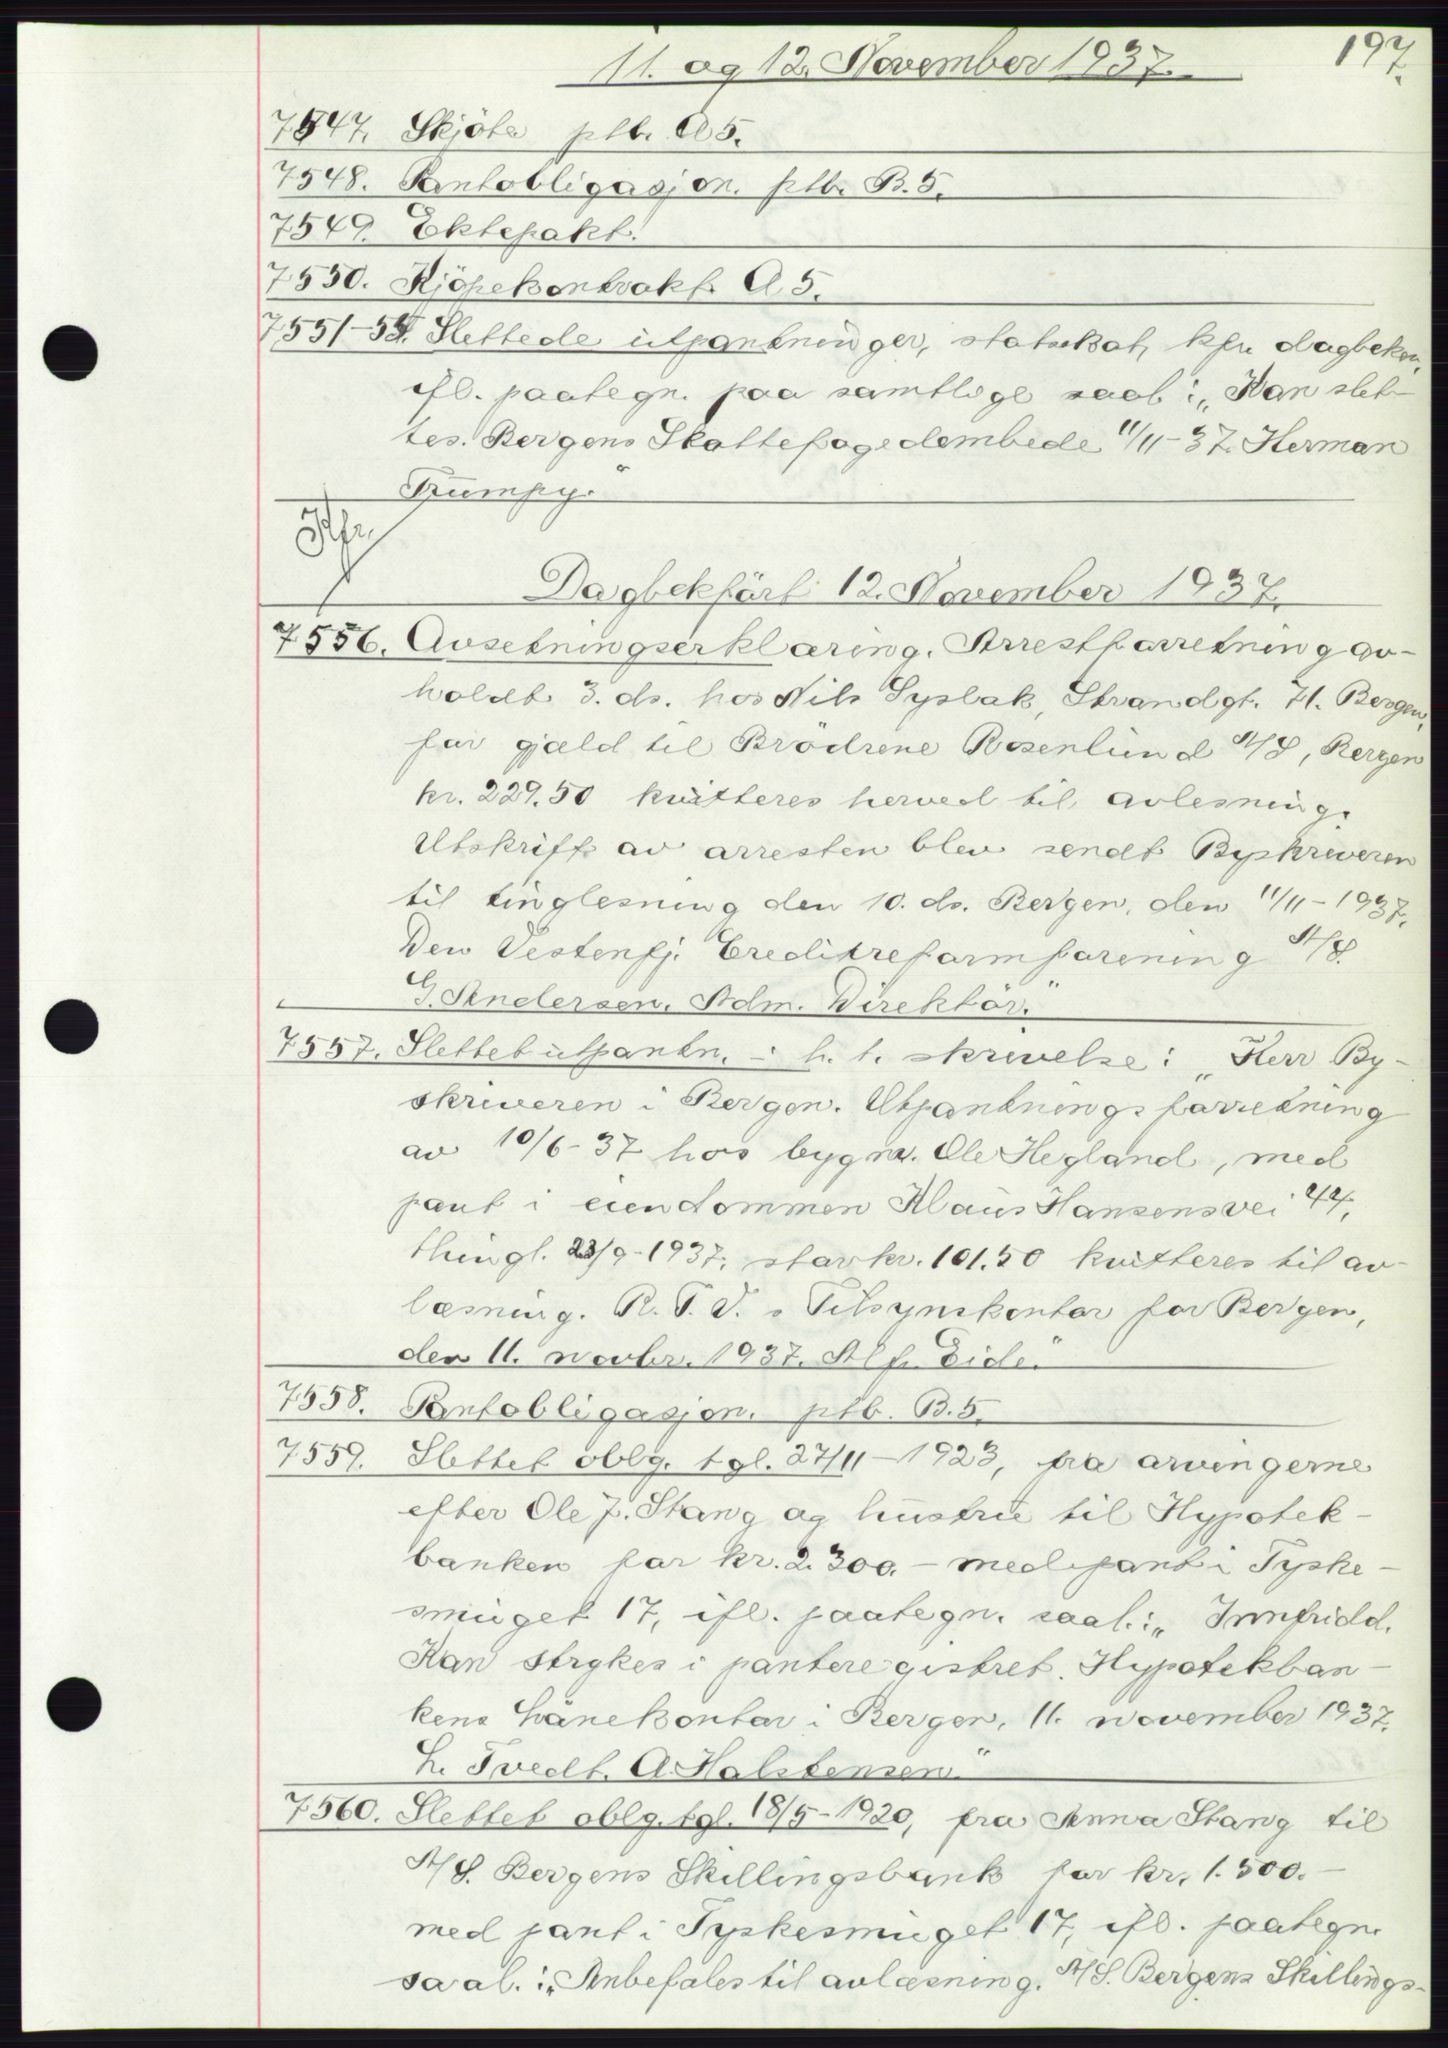 197.
11. og 12. November 1937.
7547. Skjöte ptb. A 5.
7548. Pantobligasjon. ptb. B. 5.
7549. Ektepakt.
7550. Kjöpekontrakt. A 5.
7551-55. Slettede utpantninger, statsskat, kfr. dagboken,
ifl. paategn. paa samtlige saal: „Kan slet-
tes. Bergens Skattefogedembede 11/11-37. Herman
Trumpy."
Dagbokfört 12. November 1937.
7556. Avsetningserklæring. Arrestforretning av-
holdt 3. ds. hos Nils Syslak, Strandgt. 71. Bergen,
for gjæld til Brödrene Rosenlund A/S, Bergen
kr. 229.50 kvitteres herved til avlesning.
Utskrift av arresten blev sendt Byskriveren
til tinglesning den 10. ds. Bergen, den 11/11-1937.
Den Vestenfj. Creditreformforening A/S.
G. Andersen. Adm. Direktör."
7557. Slettet utpantn. - h. t. skrivelse: „Herr By-
skriveren i Bergen. Utpantningsforretning
av 10/6-37 hos bygm. Ole Hegland, med
pant i eiendommen Klaus Hansensvei 44,
thingl. 23/9-1937, stor kr. 101.50 kvitteres til av-
læsning. R. T. V.s Tilsynskontor for Bergen,
den 11. novbr. 1937. Alf. Eide."
7558. Pantobligasjon. ptb. B. 5.
7559. Slettet oblg. tgl. 27/11-1923, fra arvingerne
efter Ole J. Stang og hustru til Hypotek-
banken for kr. 2.300.- med pant i Tyske-
smuget 17, ifl. paategn. saal.: „Innfridd.
Kan strykes i panteregistret. Hypotekban-
kens Lånekontor i Bergen, 11. november 1937.
L. Tvedt. A. Halstensen"
7560. Slettet oblg. tgl. 18/5-1920, fra Anna Stang til
A/S. Bergens Skillingsbank for kr. 1.500.-
med pant i Tyskesmuget 17, ifl. paategn.
saal.: „Anbefales til avlæsning. A/S. Bergens Skillings-